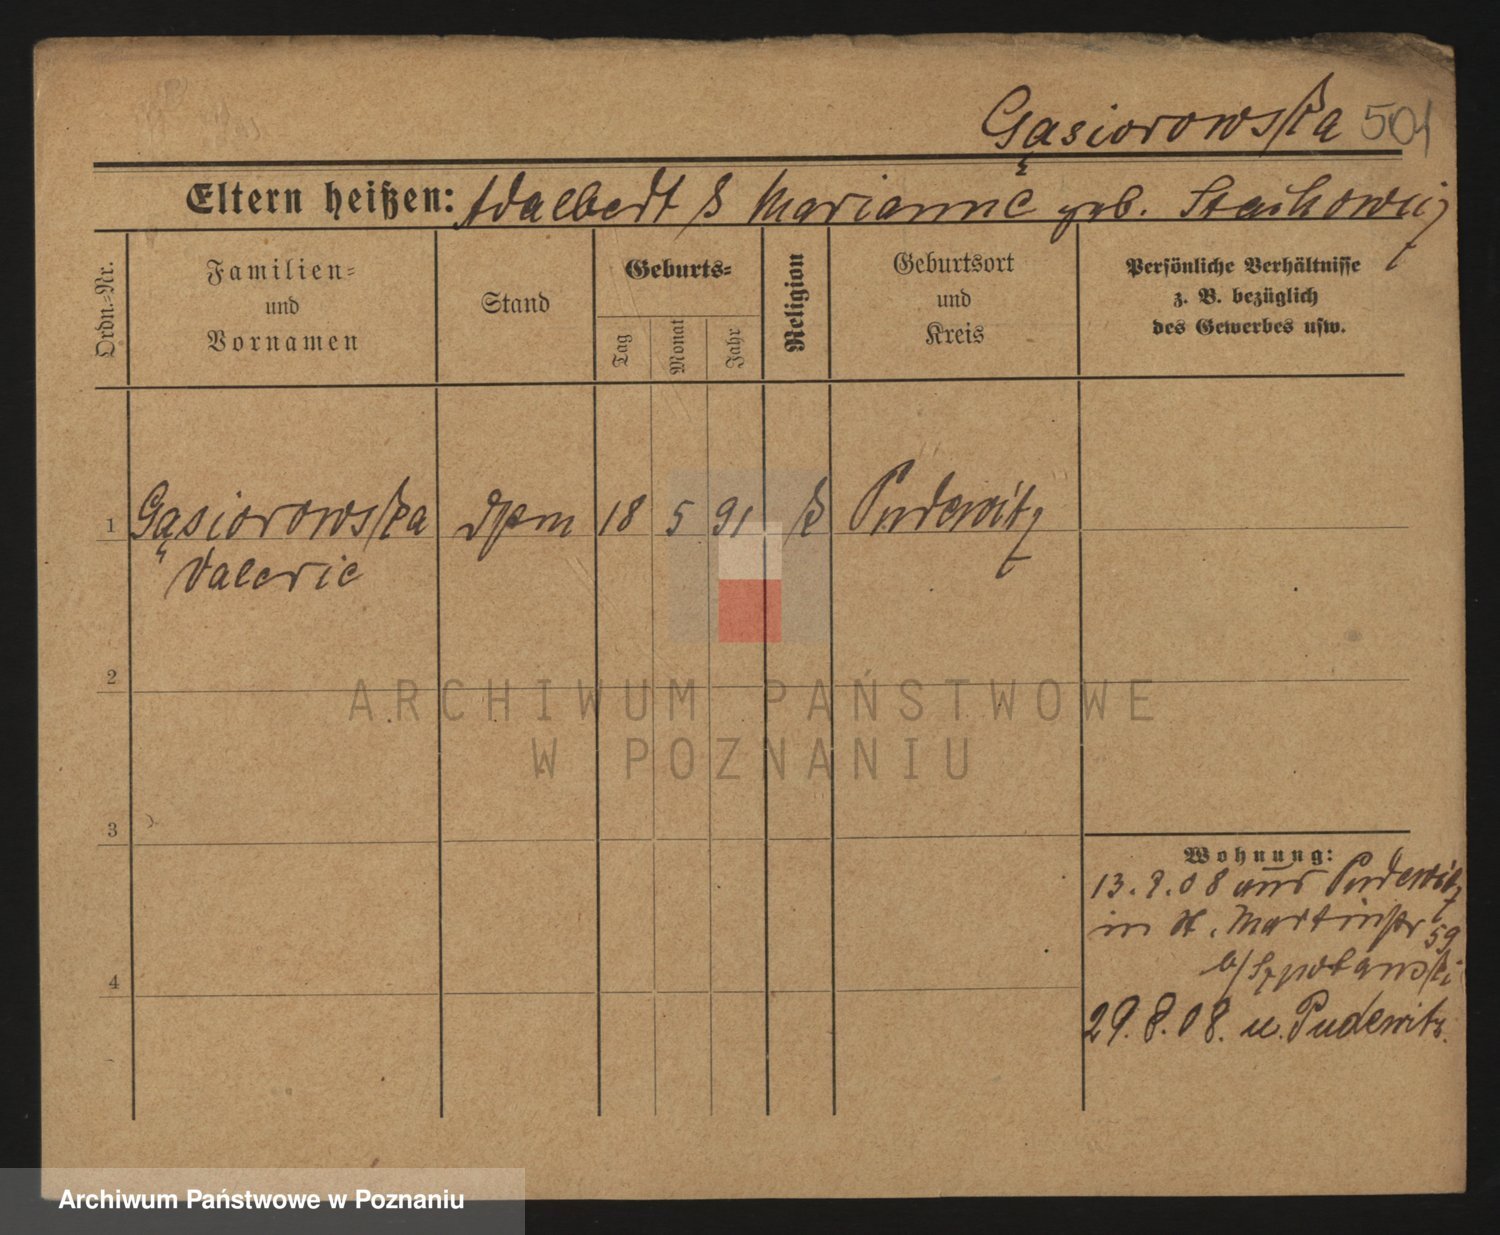 Gąsiorowska 501
Eltern heißen: Adalbert & Marianne geb.
Ordn.-Nr.
Familien-
und
Vornamen
Stand
Geburts-
Tag
Monat
Jahr
Religion
Geburtsort
und
Kreis
Persönliche Verhältnisse
z. B. bezüglich
des Gewerbes usw.
1 Gąsiorowska 18 5 91 k Pudewitz
Valerie
2
3
4
Wohnung:
13. 08 aus Pudewitz
in St. Martinstr 59
b/
29. 8. 08. u. Pudewitz.
ARCHIWUM PAŃSTWOWE
W POZNANIU
Archiwum Państwowe w Poznaniu